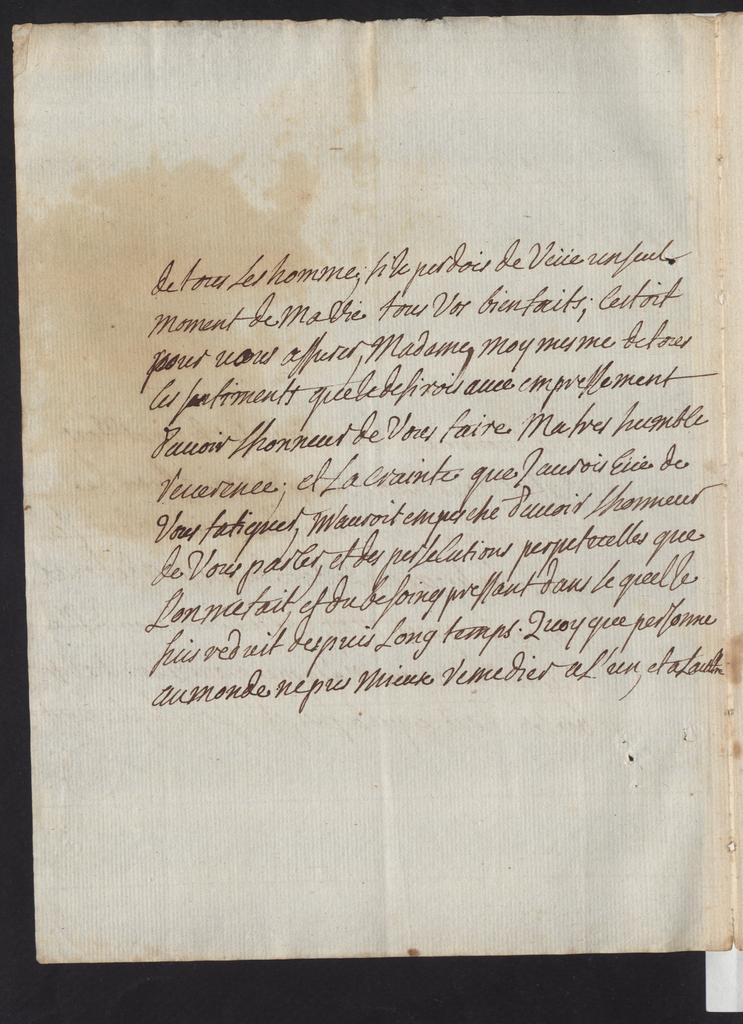 de tous les homme; si ie perdois de Veüe un seul
moment de Ma Vie tous Vos bienfaits; Cestoit
pour vous assurer, Madame, moy mesme de tous
Ces sentiments que ie desirois avec empressement
d'auoir l'honneur de Vous faire Ma tres humble
reuerence; et La crainte que J'aurois Eüe de
Vous fatiguer, M'auroit empesché d'auoir l'honneur
de Vous parler, et des persecutions perpetuelles que
L'on me fait, et du besoing pressant dans le quel Ie
suis reduit despuis Long temps. Quoy que personne
au monde ne pus Mieux remedier a L'un, et a Lauttre